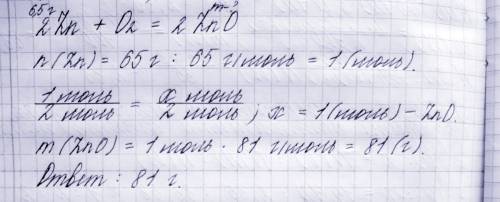 6,5 г m-?
2Zn + O2 = 2ZnO
n(Zn) = 65 г : 65 г/моль = 1 (моль).
1 моль / 2 моль = x моль / 2 моль ; x = 1 (моль) – ZnO.
m(ZnO) = 1 моль · 81 г/моль = 81 (г).
Ответ: 81 г.